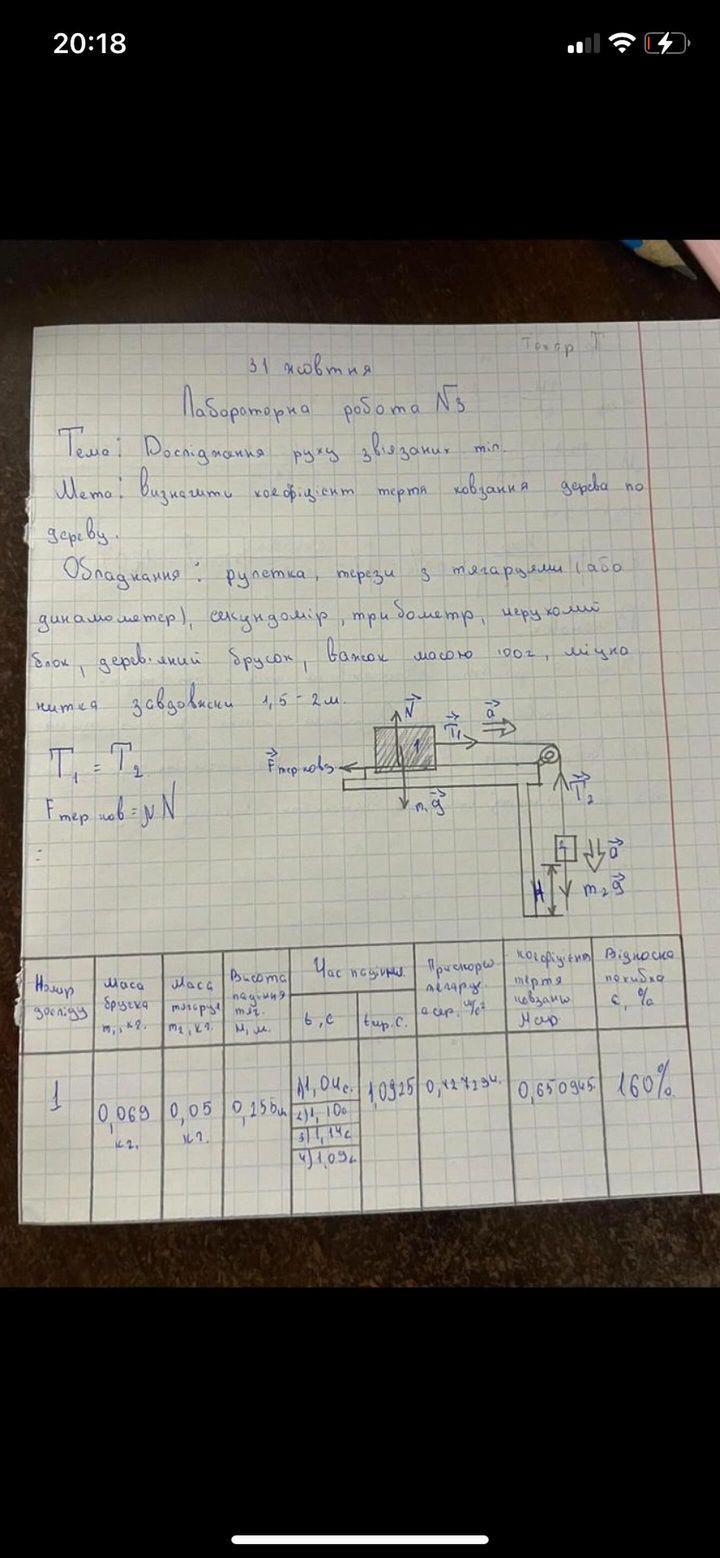 20:18
Токар Т
31 жовтня
Лабораторна робота №3
Тема: Дослідження руху зв'язаних тіл.
Мета: Визначити коефіцієнт тертя ковзання дерева по
дереву.
Обладнання: рулетка, терези з тягарцями (або
динамометр), секундомір, трибометр, нерухомий
блок, дерев'яний брусок, важок масою 100г, міцна
нитка завдовжки 1,5-2м.
N
T₁
a
1
Fтер ковз
T₁ = T₂
Fтер ков = μN
:
m₁g
T₂
a
H
m₂g
Номер досліду
Маса бруска m₁, кг.
Маса тягарця m₂, кг.
Висота падіння тяг. H, м.
Час падіння
t, с
tср. с.
Прискорю тягарця aср, м/с²
Коефіцієнт тертя ковзанн μср
Відносна похибка ε, %
1
0,069 кг.
0,05 кг.
0,255м
1) 1,04с.
2) 1,10с
3) 1,14с
4) 1,09с
1,0925
0,650945.
160%.